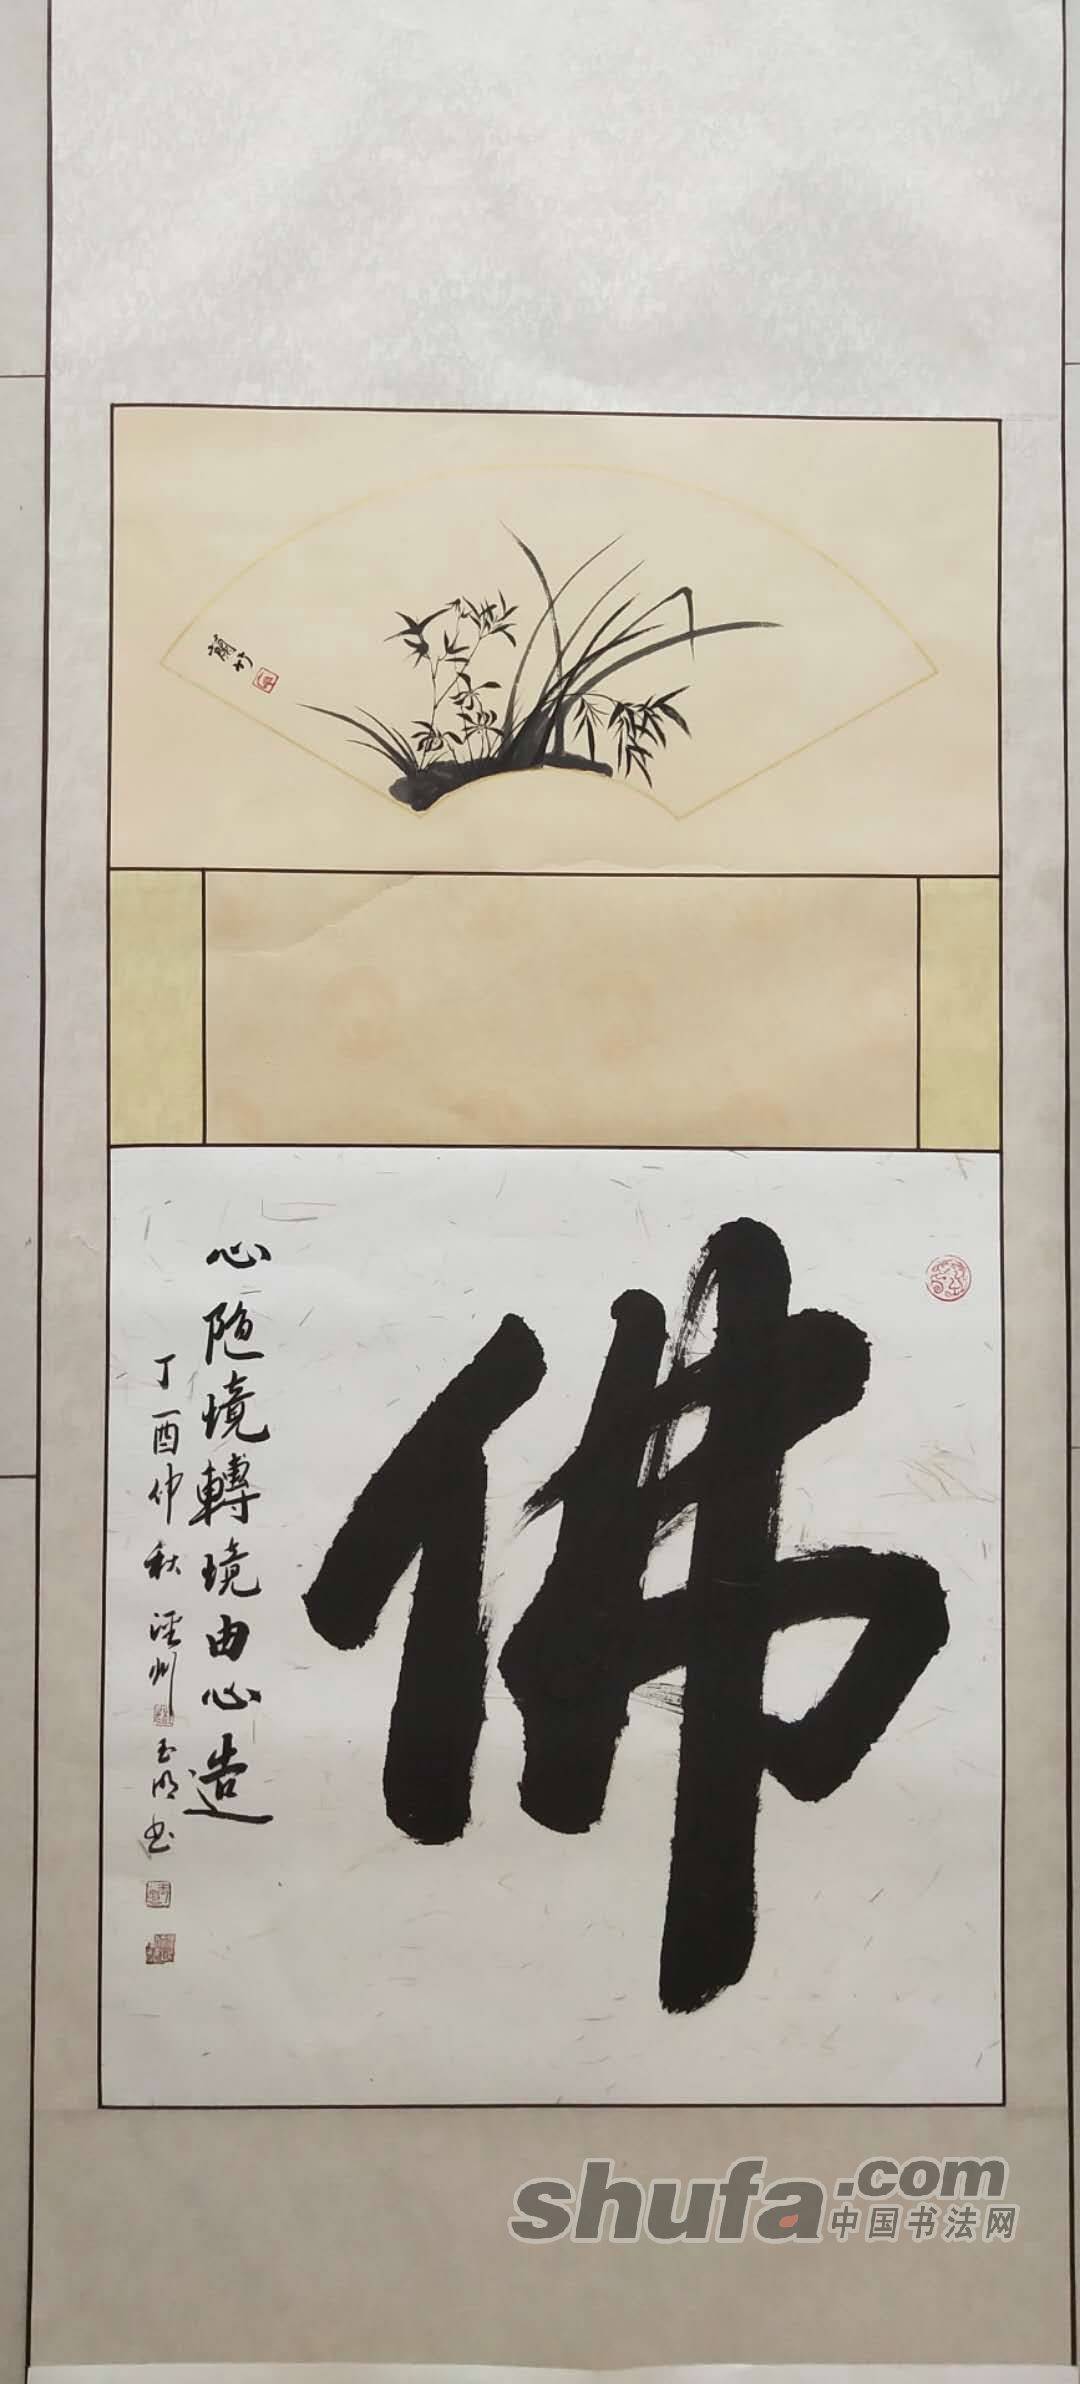 蘭竹
佛
心随境轉境由心造
丁酉仲秋泾州玉明书
shufa.com
中国书法网